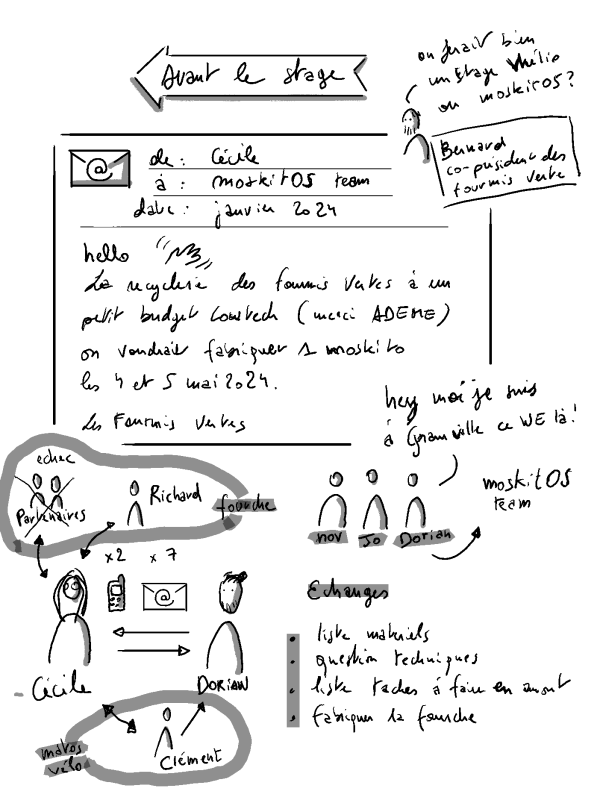 Avant le stage
on ferait bien
un stage Vhélio
ou moskitOS?
Bernard
co-président des
fourmis verte
de : Cécile
à : moskitOS team
date : janvier 2024
hello
La recyclerie des fourmis vertes à un
petit budget lowtech (merci ADEME)
on voudrait fabriquer 1 moskito
les 4 et 5 mai 2024.
Les Fourmis vertes
hey moi je suis
à Granville ce WE là!
echec
Partenaires
Richard
fourche
nov
Jo
Dorian
moskitOS
team
x2 x7
Cécile
DORIAN
Echanges
liste matériels
question techniques
liste taches à faire en amont
fabriquer la fourche
matos
vélo
Clément